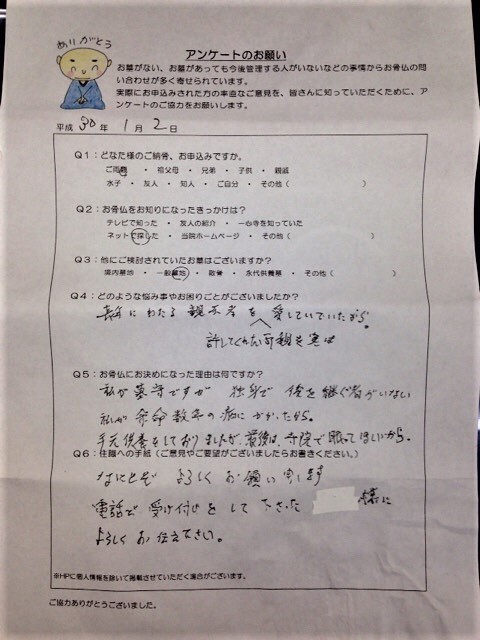 ありがとう
アンケートのお願い
お墓がない、お墓があっても今後管理する人がいないなどの事情からお骨仏の問
い合わせが多く寄せられています。
実際にお申込みされた方の率直なご意見を、皆さんに知っていただくために、ア
ンケートのご協力をお願いします。
平成 30 年 1 月 2 日
Q1：どなた様のご納骨、お申込みですか。
ご両親 ・ 祖父母 ・ 兄弟 ・ 子供 ・ 親戚
水子 ・ 友人 ・ 知人 ・ ご自分 ・ その他（ ）
Q2：お骨仏をお知りになったきっかけは？
テレビで知った ・ 友人の紹介 ・ 一心寺を知っていた
ネットで探した ・ 当院ホームページ ・ その他（ ）
Q3：他にご検討されていたお墓はございますか？
境内墓地 ・ 一般墓地 ・ 散骨 ・ 永代供養墓 ・ その他（ ）
Q4：どのような悩み事やお困りごとがございましたか？
長年にわたる親不孝を 愛していていたから。
許してくれた両親を実は
Q5：お骨仏にお決めになった理由は何ですか？
私が墓守ですが 独身で 後を継ぐ者がいない
私が余命数年の病にかかったから。
手元供養をしておりましたが、最後は、寺院で眠ってほしいから。
Q6：住職への手紙（ご意見やご要望がございましたらお書きください。）
なにとぞ よろしく お願い申します
電話で 受け付けをして 下さった 様に
よろしく お伝え下さい。
※HPに個人情報を除いて掲載させていただく場合がございます。
ご協力ありがとうございました。